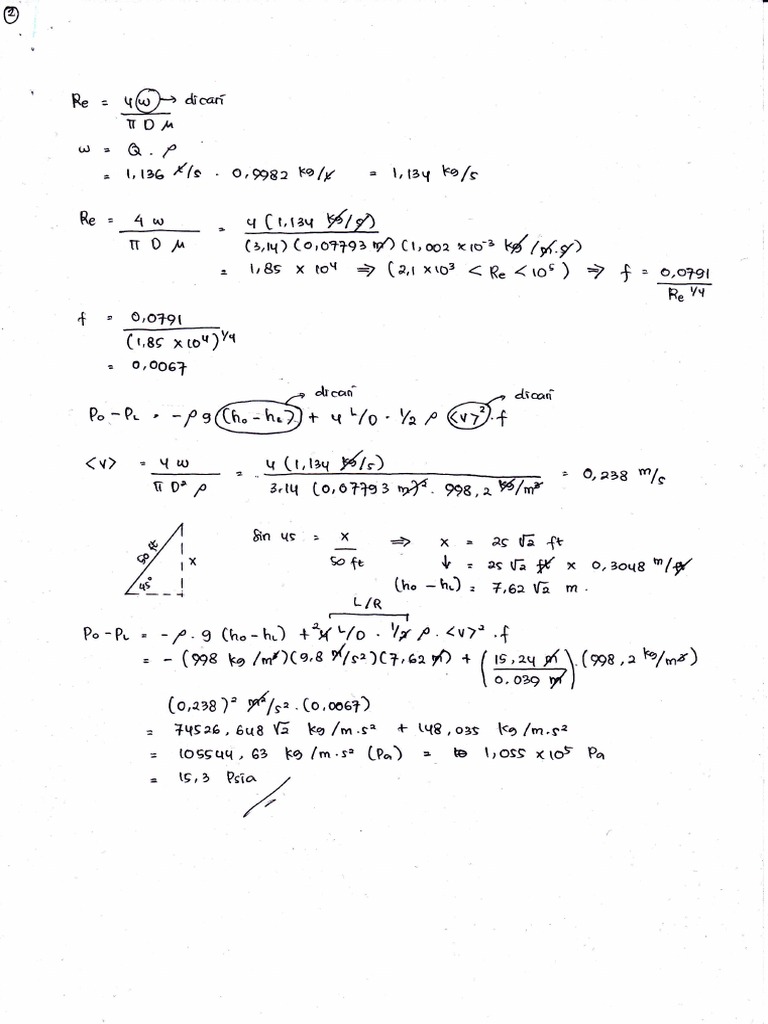 2
Re = 4 w → dicari
π D μ
w = Q . ρ
= 1,136 L/s . 0,9982 kg/L = 1,134 kg/s
Re = 4 w / π D μ = 4 (1,134 kg/s) / (3,14)(0,07793 m)(1,002 × 10⁻³ kg/m.s)
= 1,85 × 10⁴ ⇒ (2,1 × 10³ < Re < 10⁵) ⇒ f = 0,0791 / Re ¹/⁴
f = 0,0791 / (1,85 × 10⁴)¹/⁴
= 0,0067
dicari dicari
Po - PL = -ρ g (ho - hL) + 4 L/D . 1/2 ρ <v>² . f
<v> = 4 w / π D² ρ = 4 (1,134 kg/s) / 3,14 (0,07793 m)² . 998,2 kg/m³ = 0,238 m/s
50 ft x 45°
Sin 45 = x / 50 ft ⇒ x = 25 √2 ft
↓ = 25 √2 ft × 0,3048 m/ft
(ho - hL) = 7,62 √2 m.
L/R
Po - PL = -ρ . g (ho - hL) + ²4 L/D . 1/2 ρ . <v>² . f
= - (998 kg/m³)(9,8 m/s²)(7,62 m) + (15,24 m / 0.039 m) . (998,2 kg/m³)
(0,238)² m²/s² . (0,0067)
= 74526,648 √2 kg/m.s² + 148,035 kg/m.s²
= 105544,63 kg/m.s² (Pa) = 1,055 × 10⁵ Pa
= 15,3 Psia